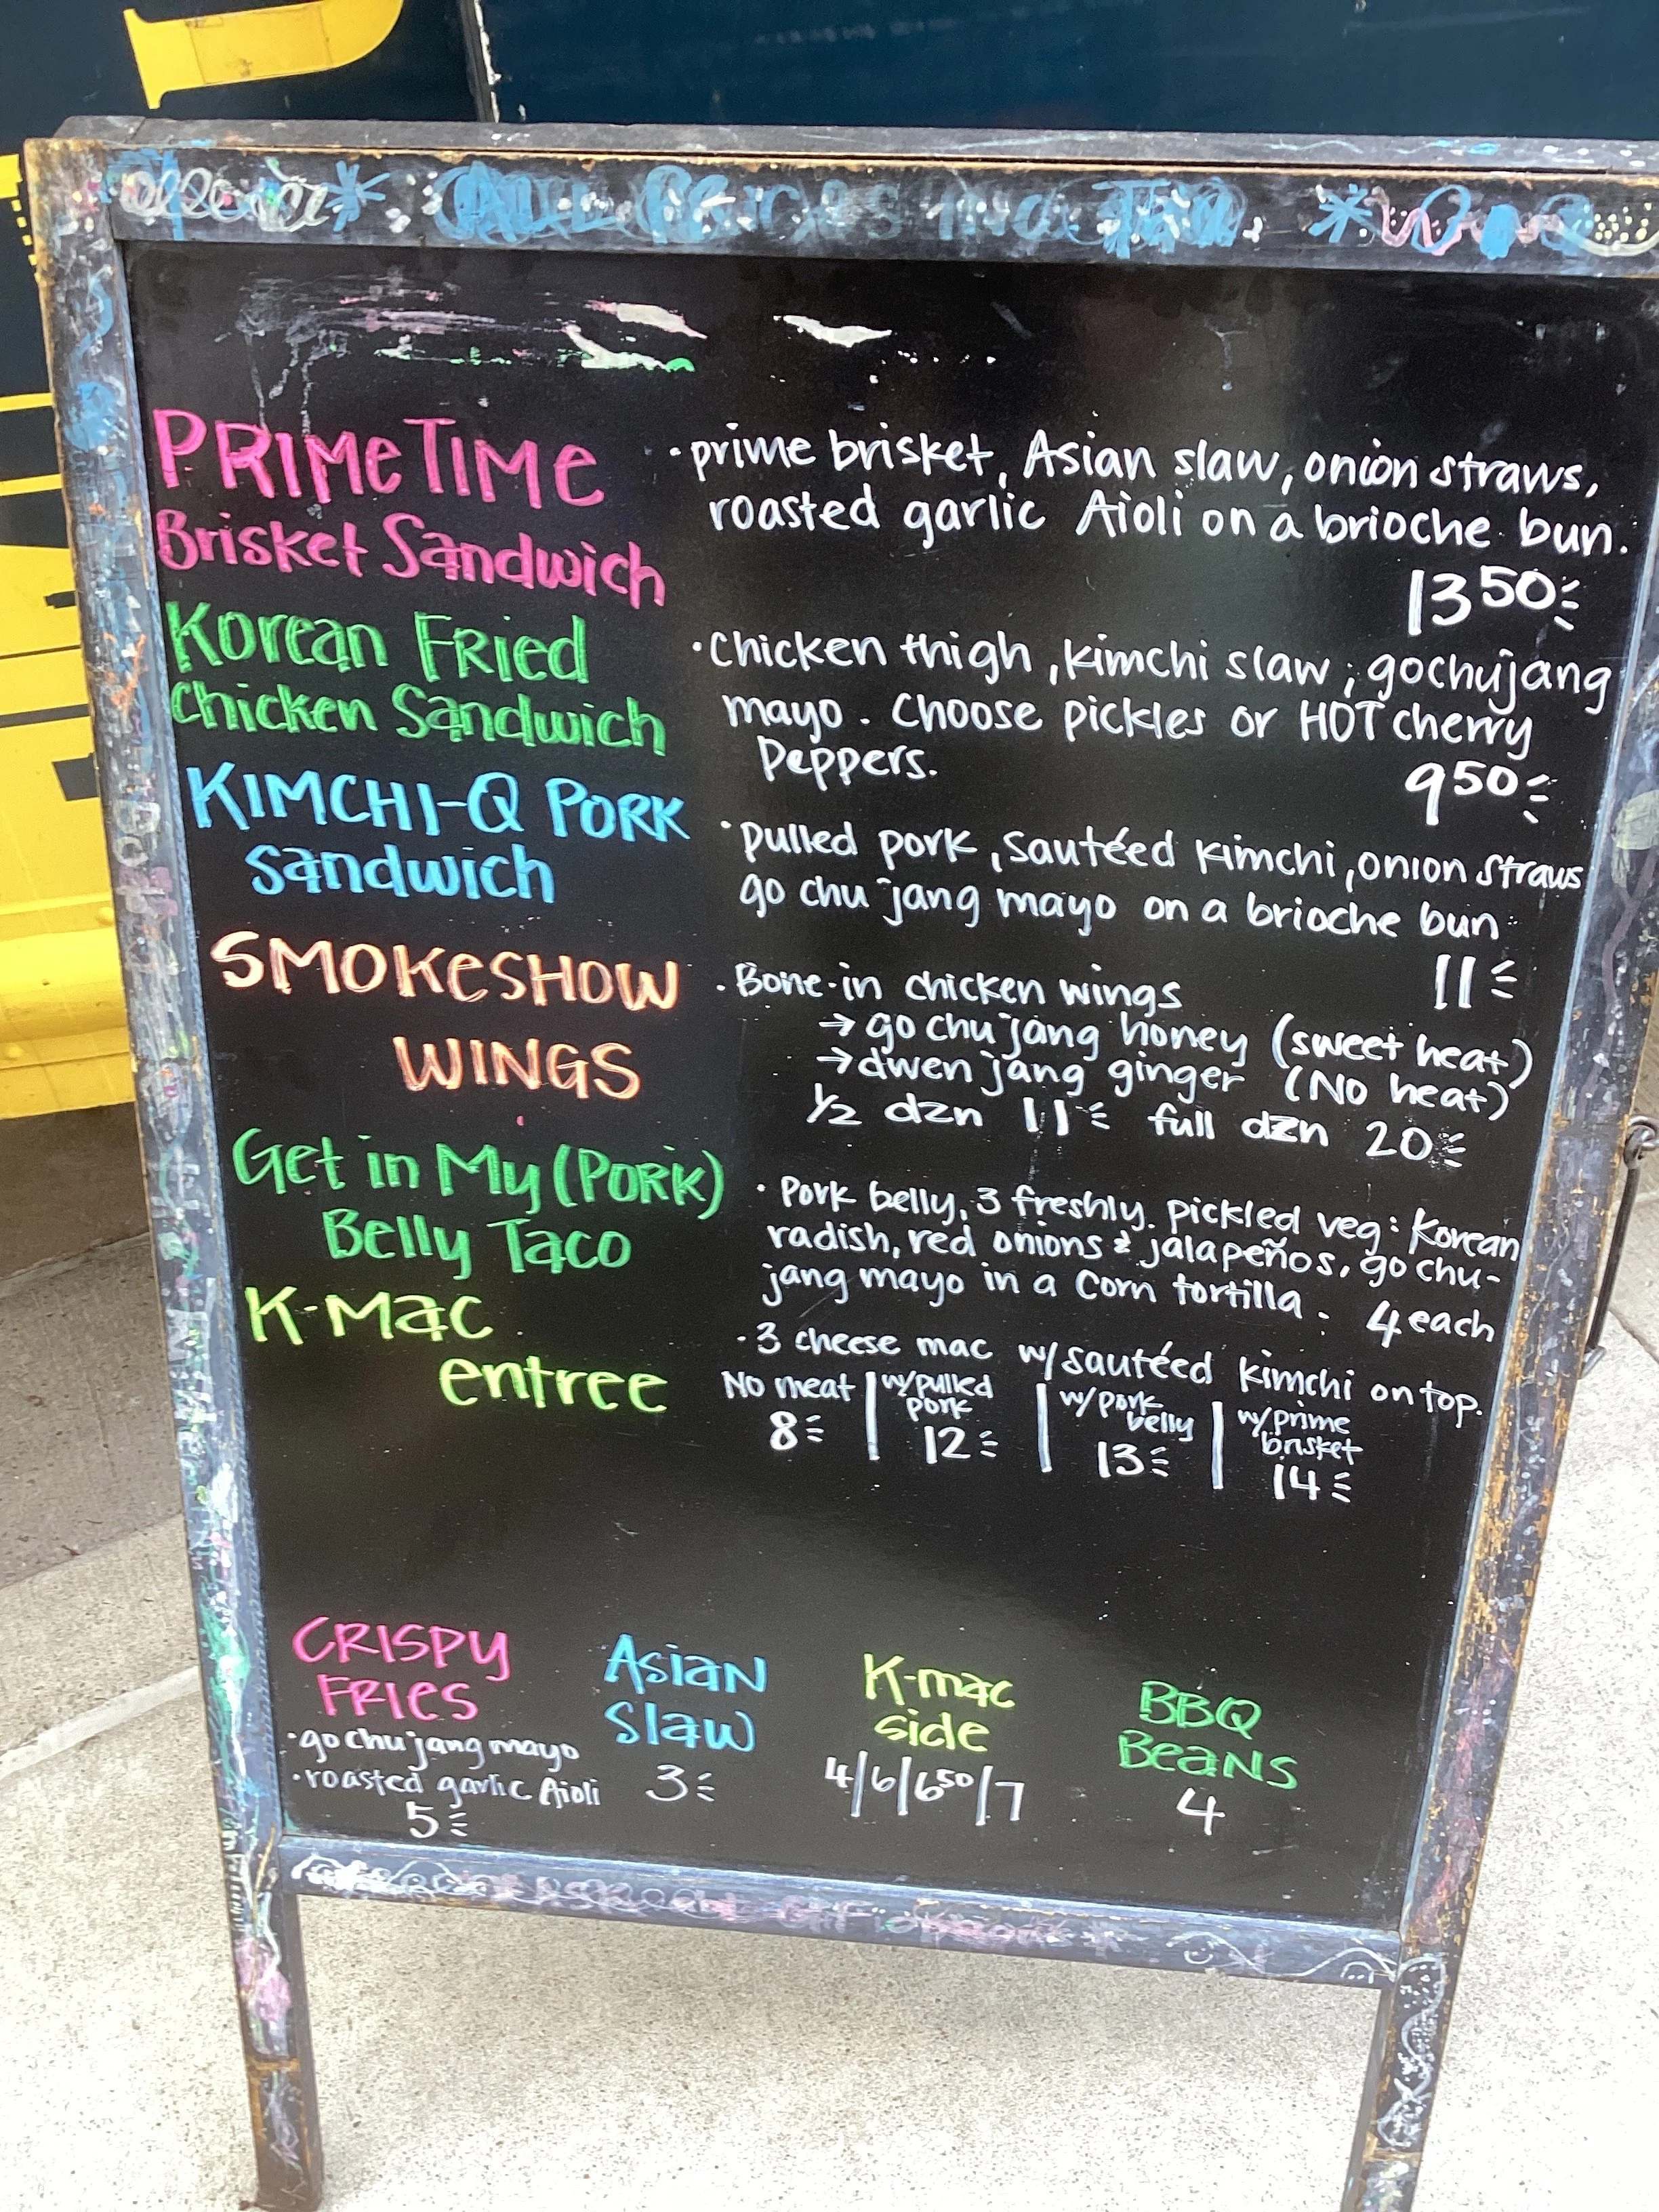 PRIMETIME
Brisket Sandwich
· prime brisket, Asian slaw, onion straws,
roasted garlic Aioli on a brioche bun.
13 50
Korean Fried
Chicken Sandwich
· Chicken thigh, kimchi slaw, gochujang
mayo. Choose pickles or HOT cherry
Peppers.
9 50
KIMCHI-Q PORK
Sandwich
· pulled pork, sautéed kimchi, onion straws
go chu jang mayo on a brioche bun
11
SMOKESHOW
WINGS
· Bone-in chicken wings
→ go chu jang honey (sweet heat)
→ dwen jang ginger (No heat)
1/2 dzn 11 full dzn 20
Get in My (PORK)
Belly Taco
· Pork belly, 3 freshly pickled veg: Korean
radish, red onions & jalapeños, go chu-
jang mayo in a corn tortilla. 4 each
K-Mac
entree
· 3 cheese mac w/ sautéed kimchi on top.
No meat | w/pulled pork | w/pork belly | w/prime brisket
8 12 13 14
CRISPY
FRIES
· go chu jang mayo
· roasted garlic Aioli
5
Asian
Slaw
3
K-mac
side
4/6/6 50/7
BBQ
Beans
4